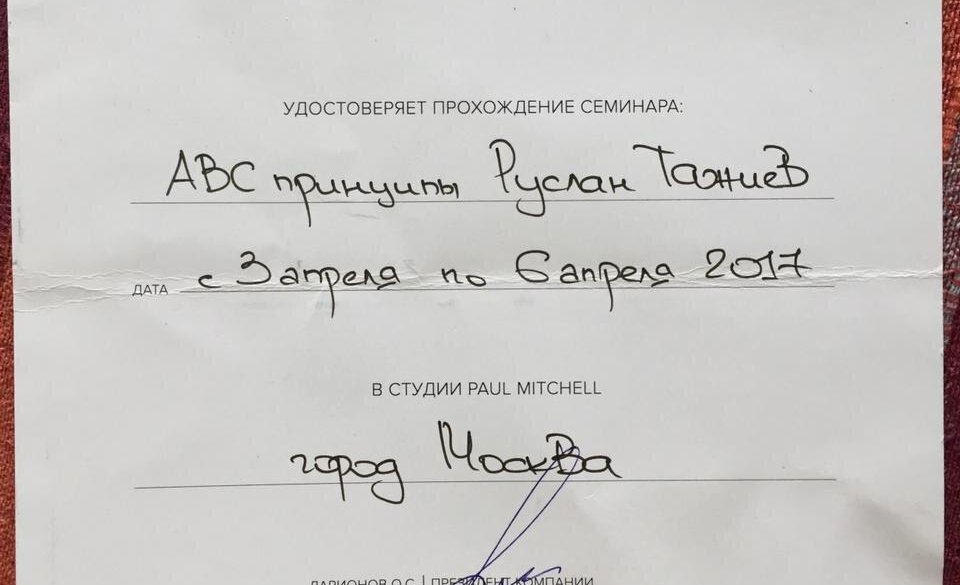 УДОСТОВЕРЯЕТ ПРОХОЖДЕНИЕ СЕМИНАРА:
АВС принципы Руслан Тажиев
ДАТА с 3 апреля по 6 апреля 2017
В СТУДИИ PAUL MITCHELL
город Москва
ЛАРИОНОВ О.С. | ПРЕЗИДЕНТ КОМПАНИИ